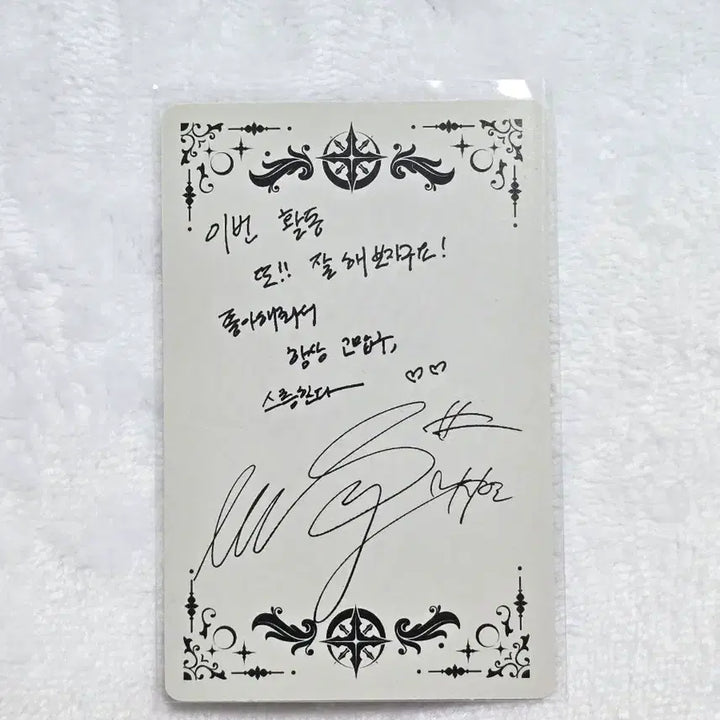 이번 활동
또!! 잘 해보자구요!
좋아해줘서
항상 고맙구,
스릉한다